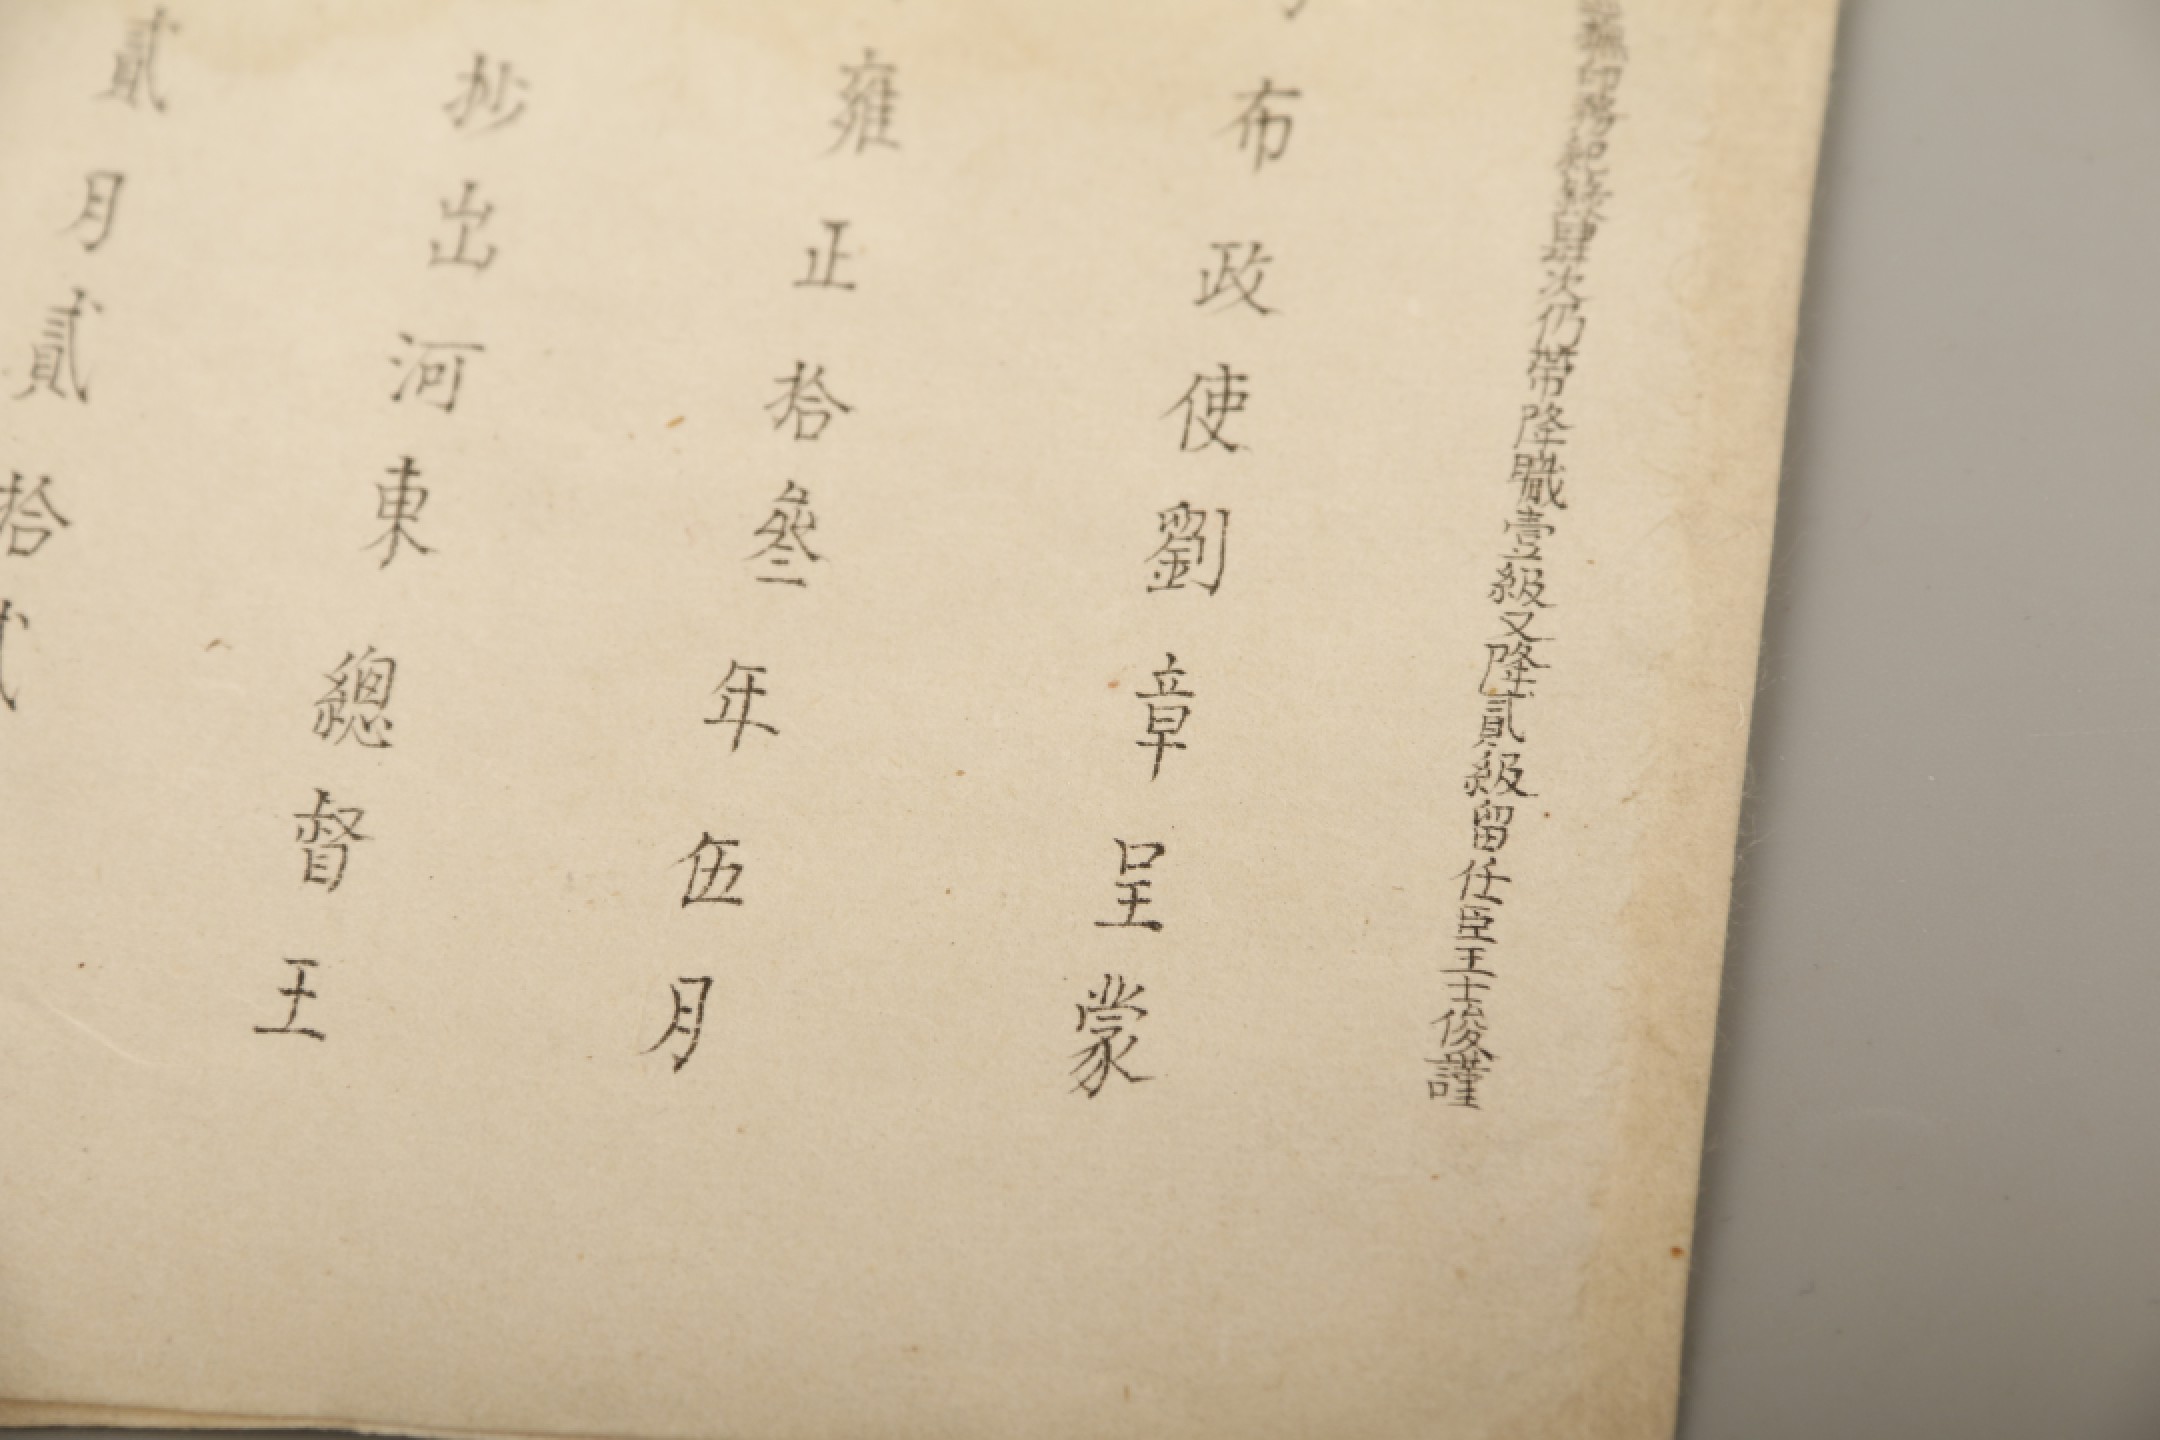 撫印務紀録肆次仍帶降職壹級又降貳級留任臣王士俊謹
布政使劉章呈蒙
雍正拾叁年伍月
抄出河東總督王
貳月貳拾貳